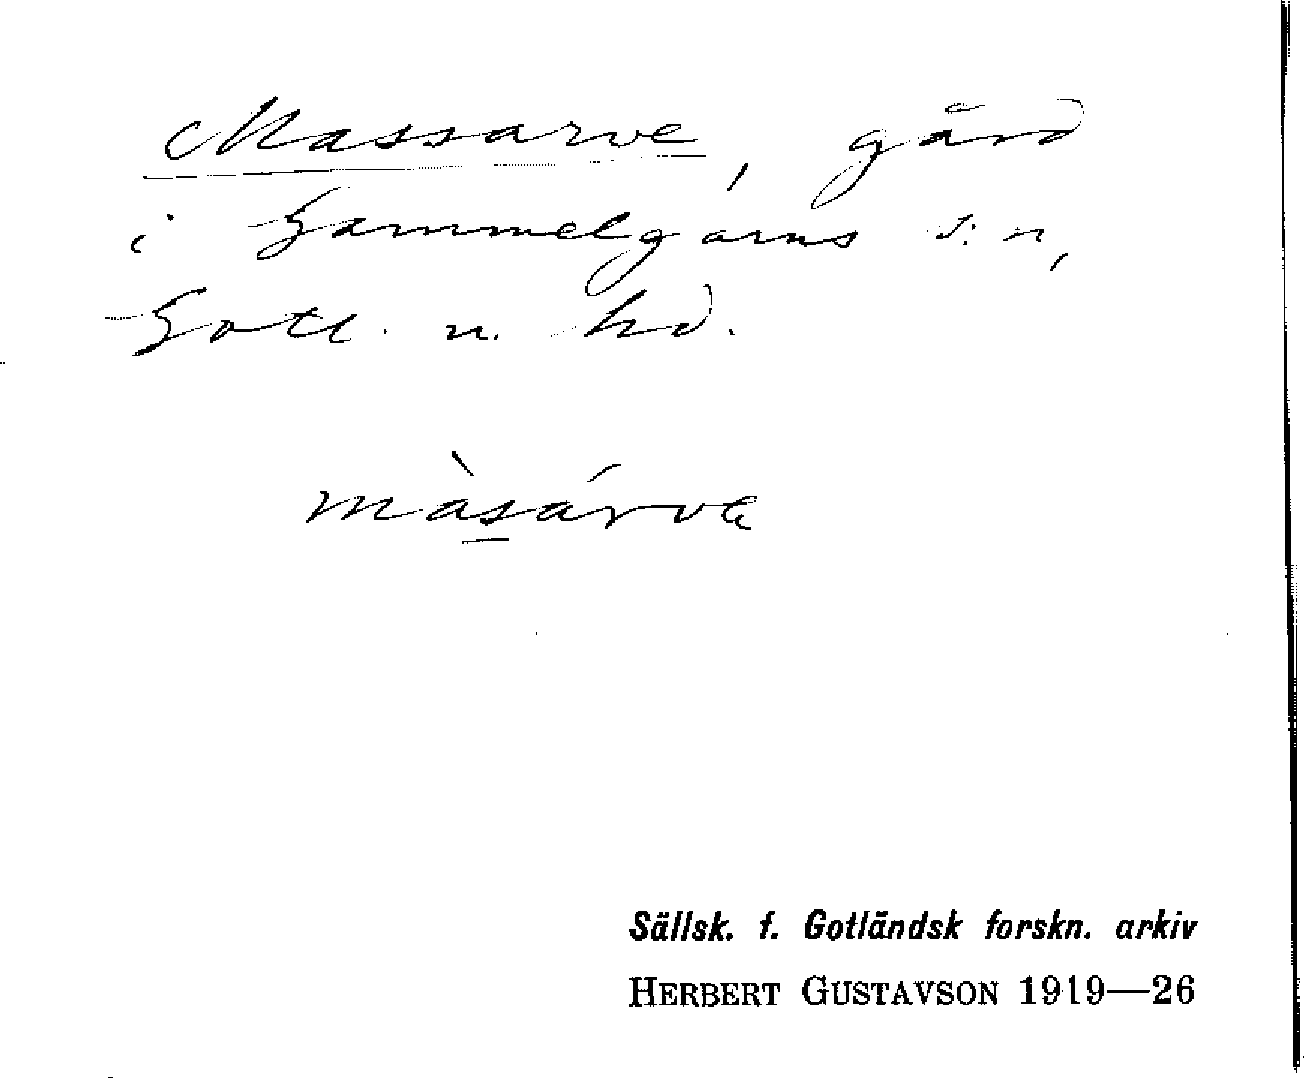 Massarve, gård
i Gammelgarns s:n,
Gotl. n. hd.
màsárvɛ
Sällsk. f. Gotländsk forskn. arkiv
HERBERT GUSTAVSON 1919—26